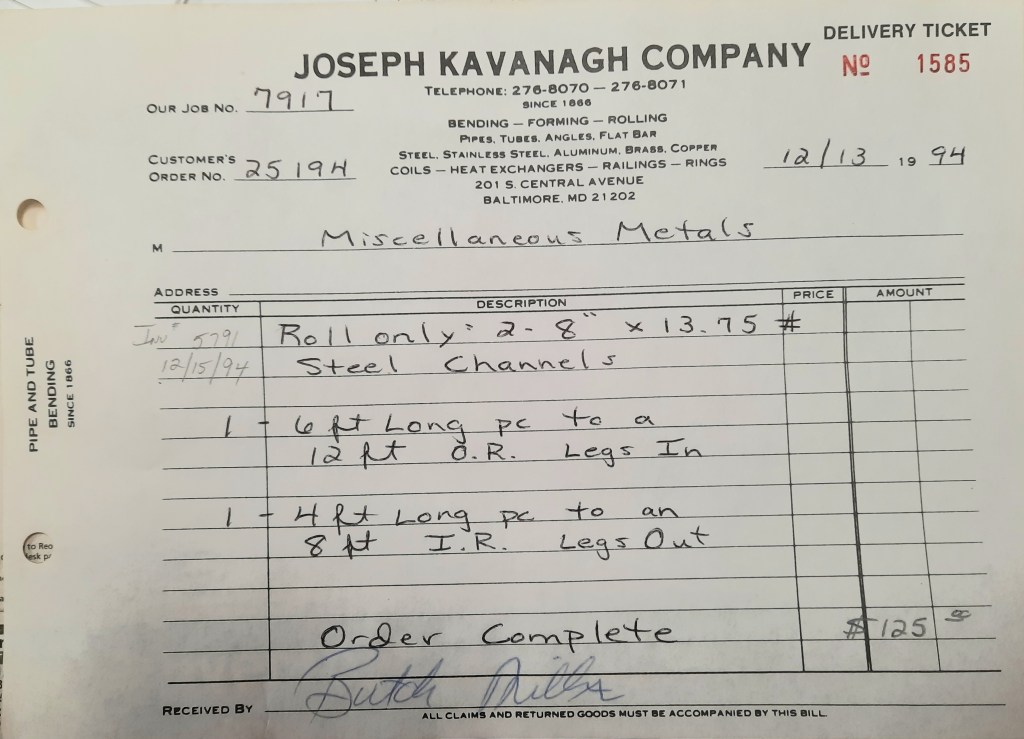 DELIVERY TICKET
JOSEPH KAVANAGH COMPANY
Nº 1585
TELEPHONE: 276-8070 — 276-8071
SINCE 1866
OUR JOB NO. 7917
BENDING — FORMING — ROLLING
PIPES, TUBES, ANGLES, FLAT BAR
STEEL, STAINLESS STEEL, ALUMINUM, BRASS, COPPER
COILS — HEAT EXCHANGERS — RAILINGS — RINGS
201 S. CENTRAL AVENUE
BALTIMORE, MD 21202
CUSTOMER'S
ORDER NO. 25194
12/13 19 94
M Miscellaneous Metals
ADDRESS
QUANTITY DESCRIPTION PRICE AMOUNT
Inv# 5791 Roll only: 2 - 8" x 13.75 #
12/15/94 Steel Channels
1 - 6 ft Long pc to a
12 ft O.R. Legs In
1 - 4 ft Long pc to an
8 ft I.R. Legs Out
Order Complete $125 00
RECEIVED BY Butch Mills
ALL CLAIMS AND RETURNED GOODS MUST BE ACCOMPANIED BY THIS BILL
PIPE AND TUBE
BENDING
SINCE 1866
to Reo
esk pr